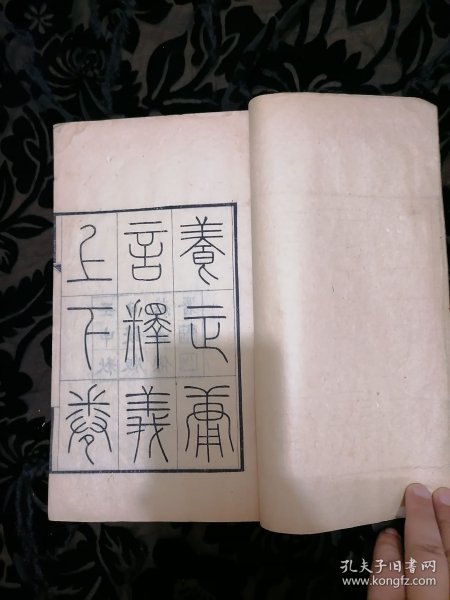 養正庸
言釋義
上下卷
孔夫子旧书网
www.kongfz.com